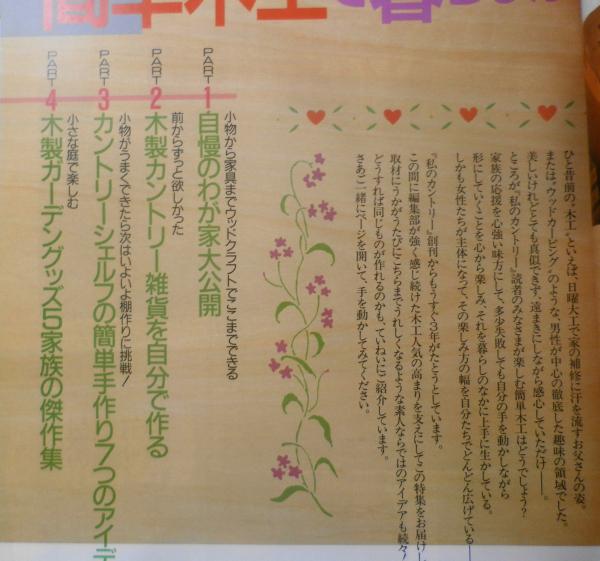 簡単木工で暮らし
ひと昔前の“木工”といえば、日曜大工で家の補修に汗を流すお父さんの姿。
または“ウッドカービング”のような、男性が中心の徹底した趣味の領域でした。
美しいけれどとても真似できず、遠まきにしながら感心していただけ——。
ところが『私のカントリー』読者のみなさまが楽しむ簡単木工はどうでしょう？
家族の応援を心強い味方にして、多少失敗しても自分の手を動かしながら
形にしていくことを心から楽しみ、それを暮らしのなかに上手に生かしている。
しかも女性たちが主体になって、その楽しみ方の幅を自分たちでどんどん広げている——
『私のカントリー』創刊からもうすぐ3年がたとうとしています。
この間に編集部が強く感じ続けた木工人気の高まりを支えにしてこの特集をお届けし
取材にうかがうたびにこちらまでうれしくなるような素人ならではのアイデアも続々！
どうすれば同じものが作れるのかも、ていねいにご紹介しています。
さあご一緒にページを開いて、手を動かしてみてください。
PART 1
小物から家具までウッドクラフトでここまでできる
自慢のわが家大公開
PART 2
前からずっと欲しかった
木製カントリー雑貨を自分で作る
PART 3
小物がうまくできたら次はいよいよ棚作りに挑戦！
カントリーシェルフの簡単手作り7つのアイデ
PART 4
小さな庭で楽しむ
木製ガーデングッズ5家族の傑作集